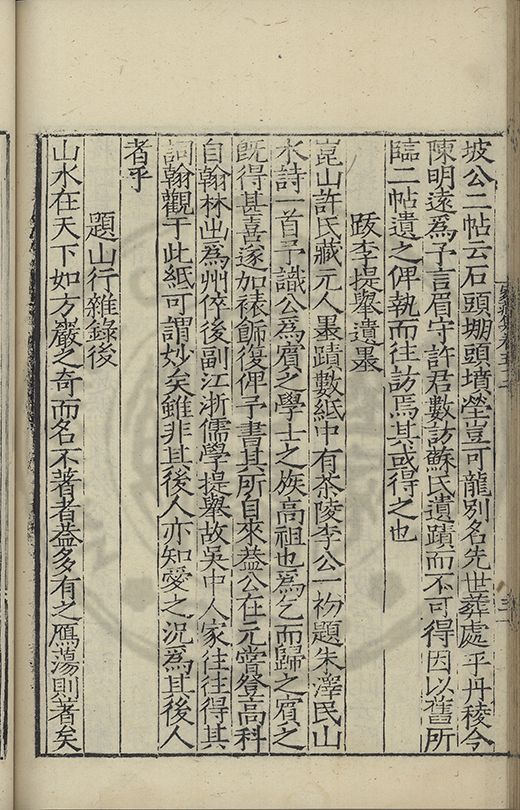 坡公二帖云石頭堋頭墳塋豈可龍別名先世葬處乎丹稜令
陳明遠爲予言眉守許君數訪蘇氏遺蹟而不可得因以舊所
臨二帖遺之俾執而往訪焉其或得之也
跋李提舉遺墨
崑山許氏藏元人墨蹟數紙中有茶陵李公一初題朱澤民山
水詩一首予識公爲賓之學士之族高祖也爲乞而歸之賓之
既得甚喜遂加裱飾復俾予書其所自來葢公在元嘗登高科
自翰林出爲州倅後副江浙儒學提舉故吳中人家往往得其
詞翰觀于此紙可謂妙矣雖非其後人亦知愛之况爲其後人
者乎
題山行雜錄後
山水在天下如方巖之奇而名不著者葢多有之鴈蕩則著矣